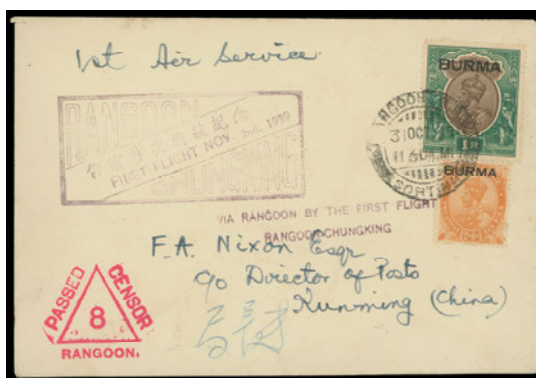 1st Air Service
BURMA
RANGOON
FIRST FLIGHT NOV. 2nd. 1939
CHUNGKING
RANGOON
31 OCT
11 30
SORTING
1R
BURMA
VIA RANGOON BY THE FIRST FLIGHT
RANGOON-CHUNGKING
F.A. Nixon Esqr
c/o Director of Posts
Kunming (China)
PASSED CENSOR
8
RANGOON.